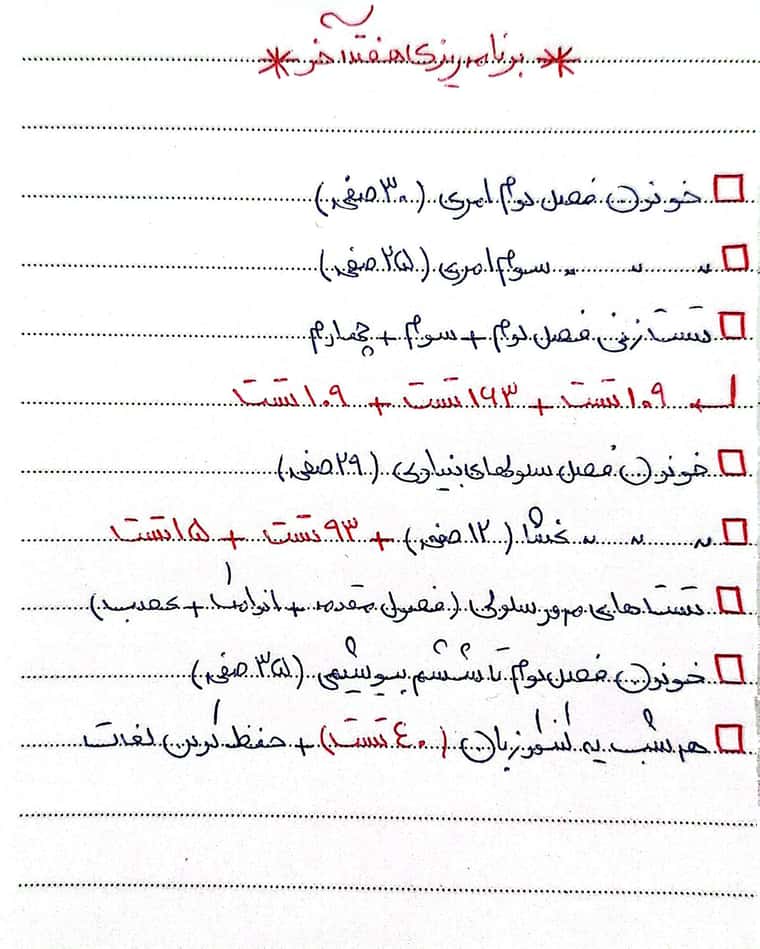 * برنامه ریزی هفته آخر *
□ خوندن فصل دوم امری (۳۰ صفحه)
□〃 〃 〃 سوم امری (۲۵ صفحه)
□ تست زنی فصل دوم + سوم + چهارم
↲ ۱۰۹ تست + ۱۶۳ تست + ۱۰۹ تست
□ خوندن فصل سلولهای بنیادی (۲۹ صفحه)
□〃 〃 〃 غشا (۱۲ صفحه) + ۹۳ تست + ۱۵ تست
□ تست های مرور سلولی (فصول مقدمه + اندامک + عصب)
□ خوندن فصل دوم تا ششم بیوشیمی (۳۵ صفحه)
□ هر شب یه کنکور زبان (۴۰ تست) + حفظ کردن لغات